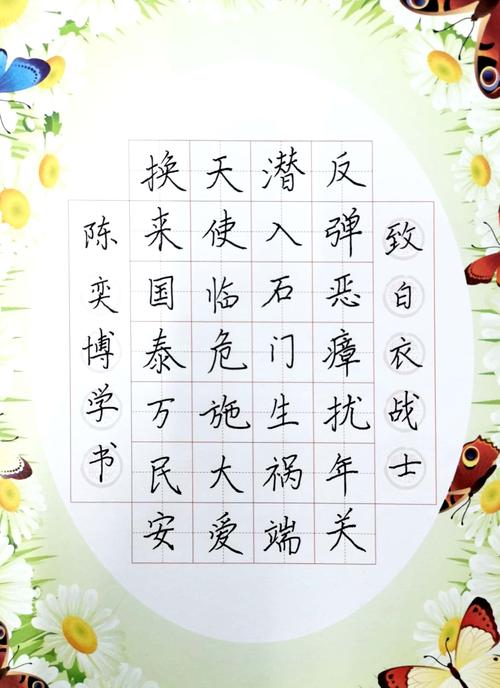 致白衣战士
反弹恶瘴扰年关
潜入石门生祸端
天使临危施大爱
换来国泰万民安
陈奕博学书